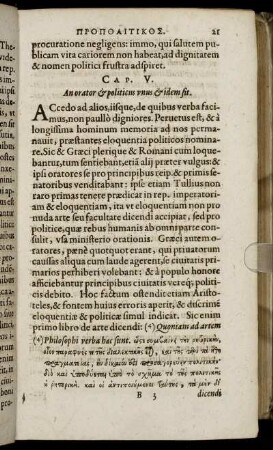 ΠΡΟΠΟΛΙΤΙΚΟΣ. 21
procuratione negligens: immo, qui salutem pu-
blicam vita cariorem non habeat, ad dignitatem
& nomen politici frustra adspiret.
CAP. V.
An orator & politicus vnus & idem sit.
ACcedo ad alios, iisque, de quibus verba faci-
mus, non paullò digniores. Peruetus est, & à
longissima hominum memoria ad nos perma-
nauit, præstantes eloquentia politicos nomina-
re. Sic & Græci plerique & Romani cum loque-
bantur, tum sentiebant, etiā alij præter vulgus: &
ipsi oratores se pro principibus reip. & primi se-
natoribus venditabant: ipse etiam Tullius non
raro primas tenere prædicat in rep. imperatori-
am & eloquentiam, ita vt eloquentiam non pro
nuda arte seu facultate dicendi accipiat, sed pro
politice, quæ rebus humanis ab omni parte con-
sulit, vsa ministerio orationis. Græci autem o-
ratores, pænè quotquot erant, qui priuatorum
caussas aliquas cum laude agerent, se ciuitatis pri-
marios perhiberi volebant; & à populo honore
afficiebantur principibus ciuitatis vereq; politi-
cis debito. Hoc factum ostenditetiam Aristo-
teles, & fontem huius erroris aperit, & discrimē
eloquentiæ & politicæ simul indicat. Sic enim
primo libro de arte dicendi: (+) Quoniam ad artem
(+) Philosophi verba hæc sunt. ὥςε συμβαίνει τὴν ῥητορικὴν,
οἷον παραφυές τι τῆς διαλεκτικῆς
διὸ καὶ ὑποδύεται ὑπὸ τὸ σχῆμα τὸ τῆς πολιτικῆς
ἡ ῥητορικὴ, καὶ οἱ ἀντιποιούμενοι ταύτης, τὰ μὲν δι᾽
B 3 dicendi